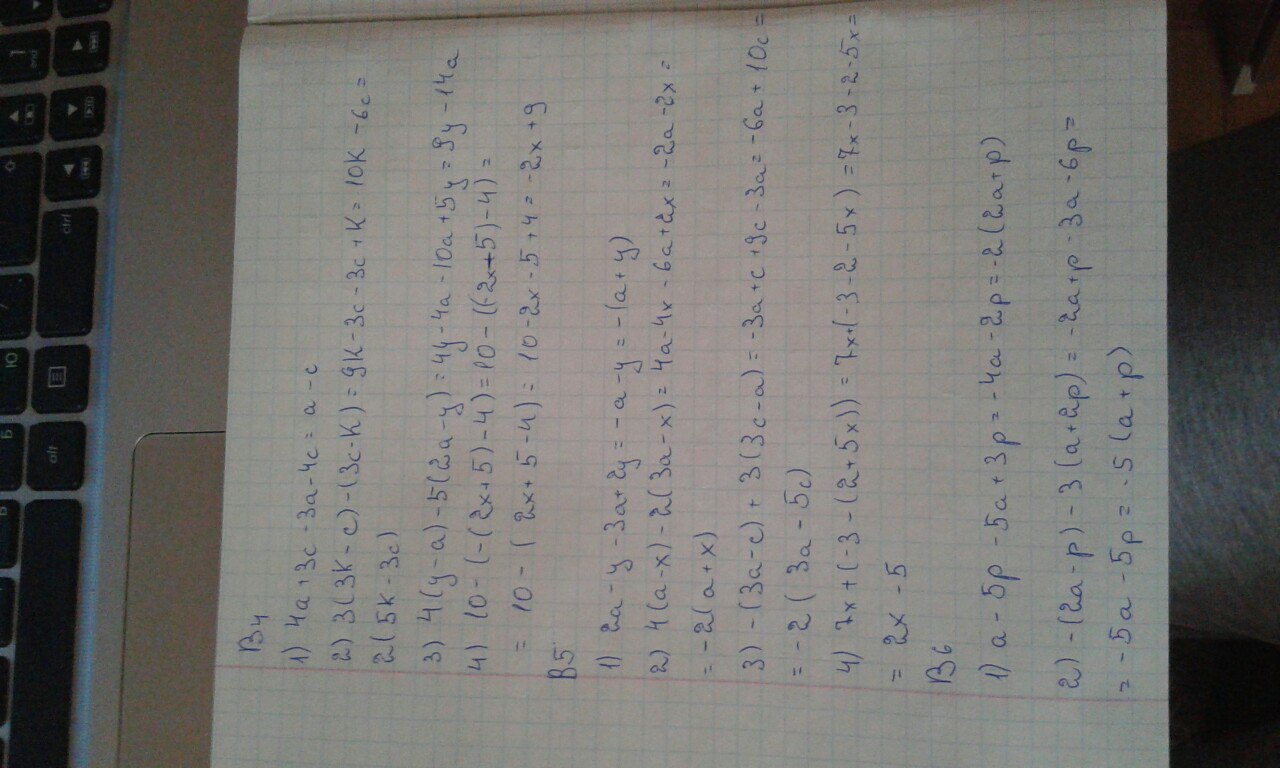 В4
1) 4a+3c-3a-4c=a-c
2) 3(3к-c)-(3c-к)=9к-3c-3c+к=10к-6c=
2(5к-3c)
3) 4(y-a)-5(2a-y)=4y-4a-10a+5y=9y-14a
4) 10-(-(2x+5)-4)=10-((-2x+5)-4)=
= 10-(2x+5-4)=10-2x-5+4=-2x+9
В5
1) 2a-y-3a+2y=-a-y=-(a+y)
2) 4(a-x)-2(3a-x)=4a-4x-6a+2x=-2a-2x=
=-2(a+x)
3) -(3a-c)+3(3c-a)=-3a+c+9c-3a=-6a+10c=
=-2(3a-5c)
4) 7x+(-3-(2+5x))=7x+(-3-2-5x)=7x-3-2-5x=
= 2x-5
В6
1) a-5p-5a+3p=-4a-2p=-2(2a+p)
2) -(2a-p)-3(a+2p)=-2a+p-3a-6p=
=-5a-5p=-5(a+p)
end
ctrl
alt
Ю
Б